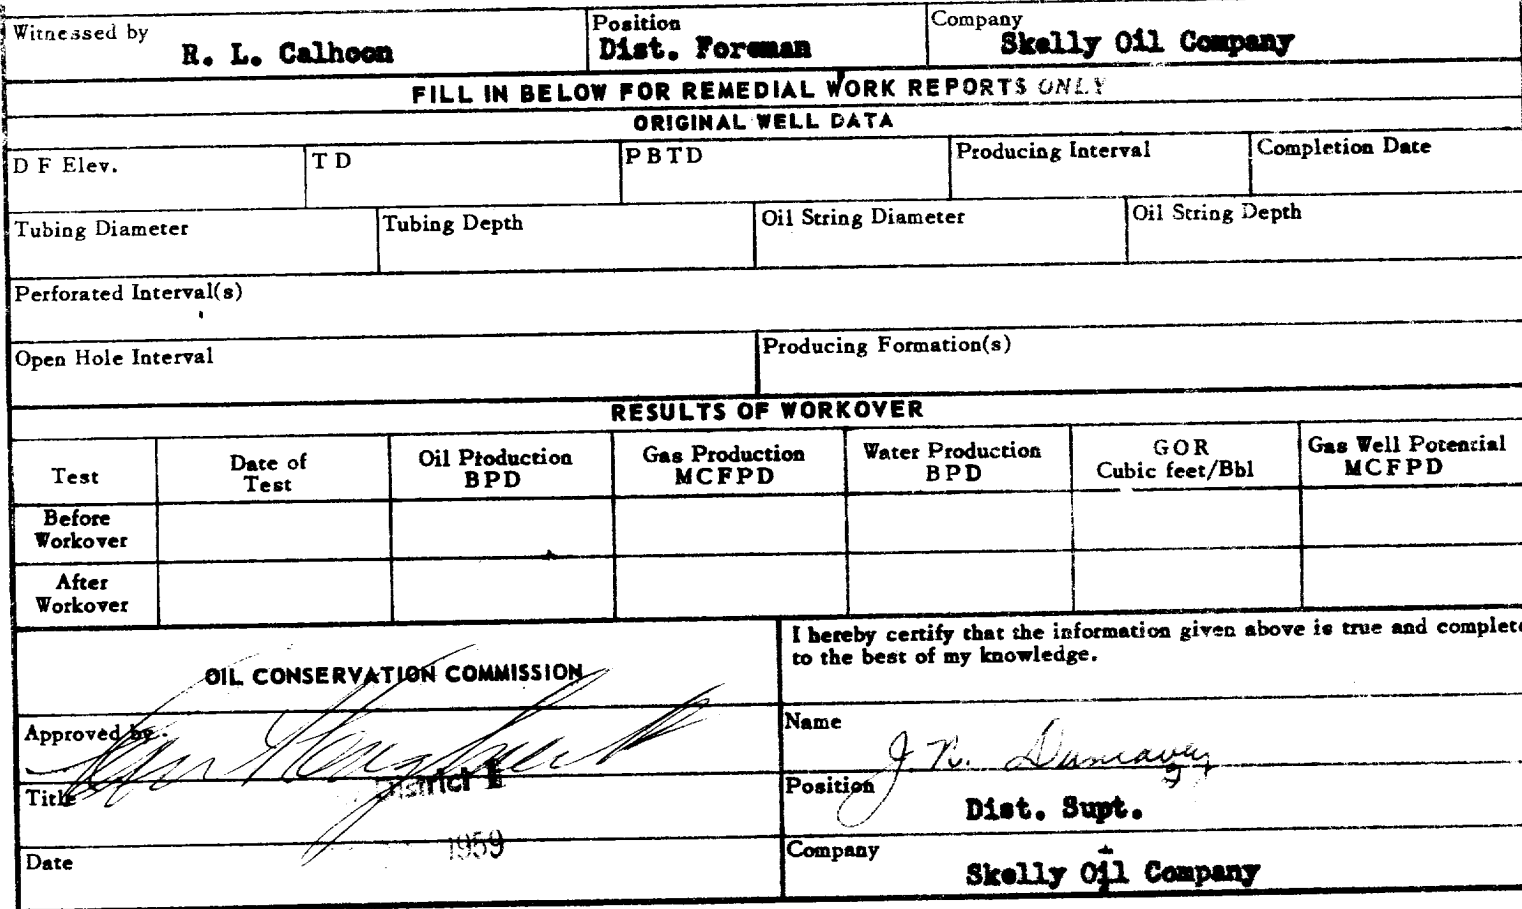 Witnessed by Position Company
R. L. Calhoon Dist. Foreman Skelly Oil Company
FILL IN BELOW FOR REMEDIAL WORK REPORTS ONLY
ORIGINAL WELL DATA
D F Elev. T D P B T D Producing Interval Completion Date
Tubing Diameter Tubing Depth Oil String Diameter Oil String Depth
Perforated Interval(s)
Open Hole Interval Producing Formation(s)
RESULTS OF WORKOVER
Test Date of Test Oil Production BPD Gas Production MCFPD Water Production BPD GOR Cubic feet/Bbl Gas Well Potential MCFPD
Before Workover
After Workover
OIL CONSERVATION COMMISSION
I hereby certify that the information given above is true and complete
to the best of my knowledge.
Approved by
Name J. N.
Title District
Position
Dist. Supt.
Date 1959
Company
Skelly Oil Company